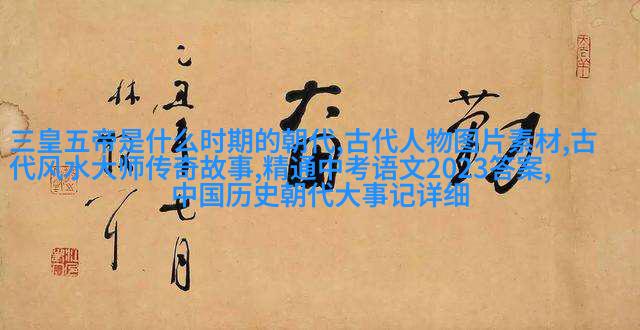 三皇五帝是什么时期的朝代,古代人物图片素材,古
代风水大师传奇故事,精通中考语文2023答案,
中国历史朝代大事记详细
勤
乙丑年七月
林